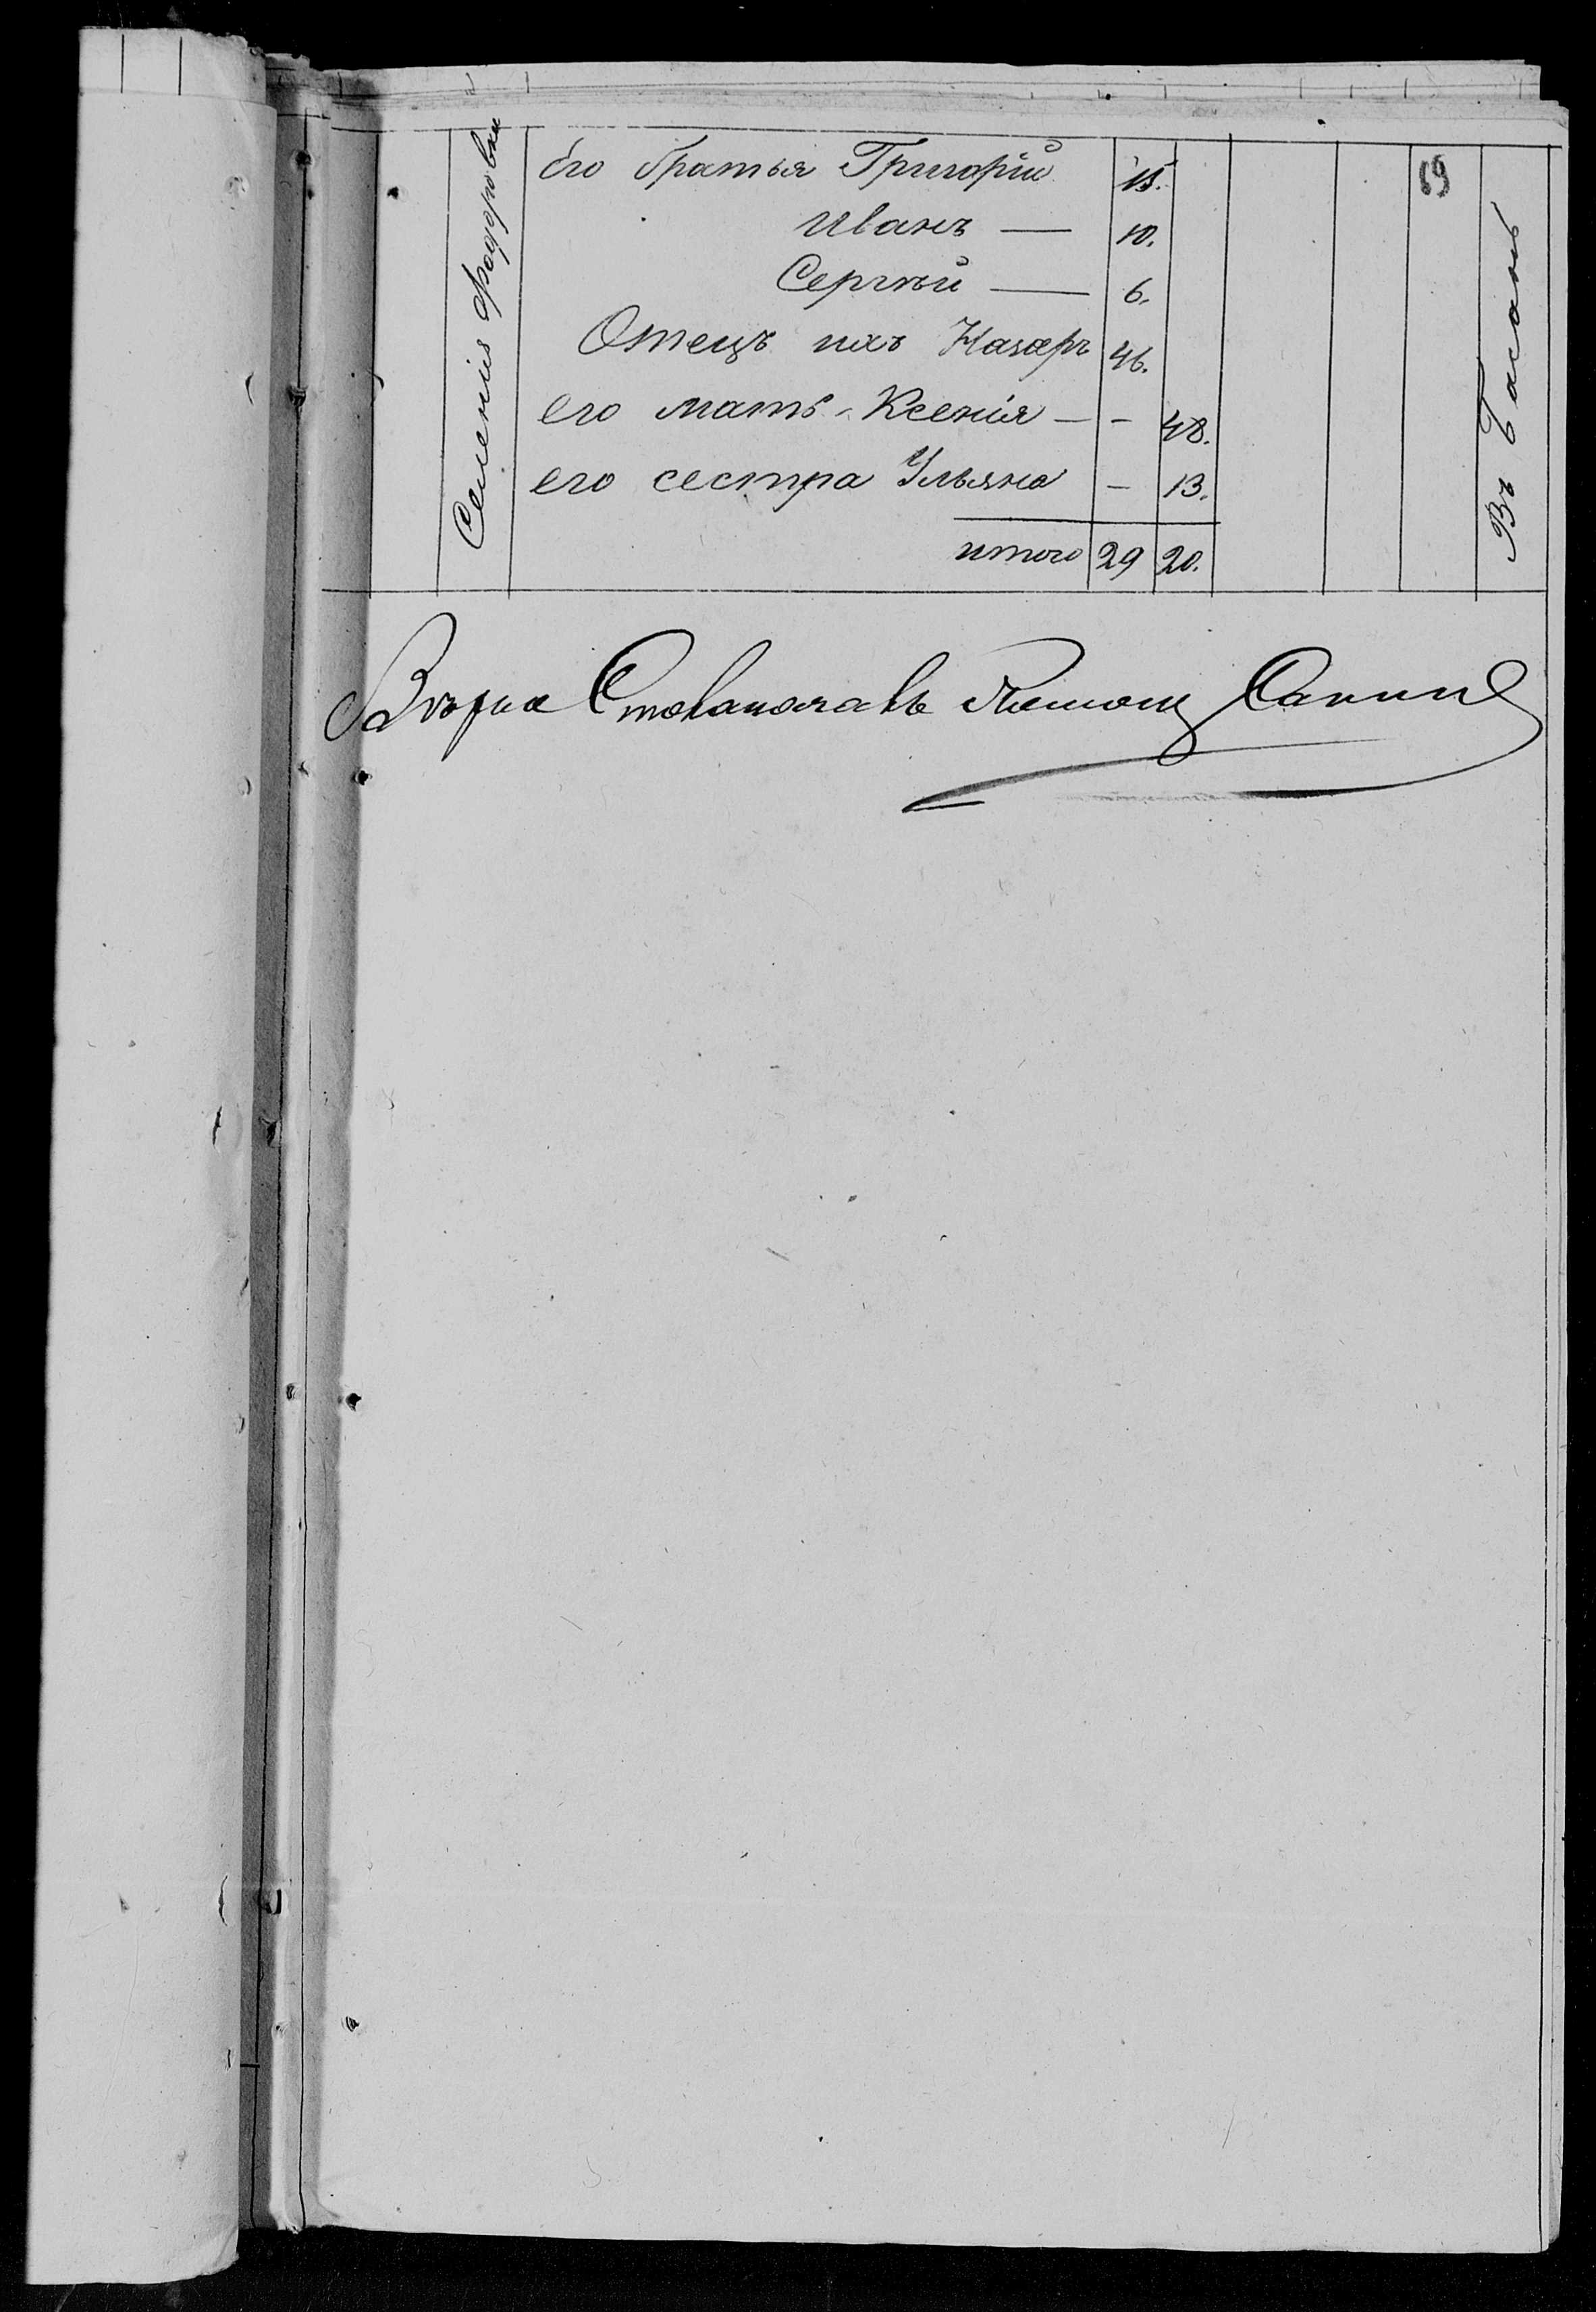 69
Селенія Федоровки
Его братья Григорій 15.
Иванъ — 10.
Сергѣй — 6.
Отецъ ихъ Назаръ 46.
его мать - Ксенія — - 48.
его сестра Ульяна — 13.
итого 29 20.
Въ Басань
Вѣрно